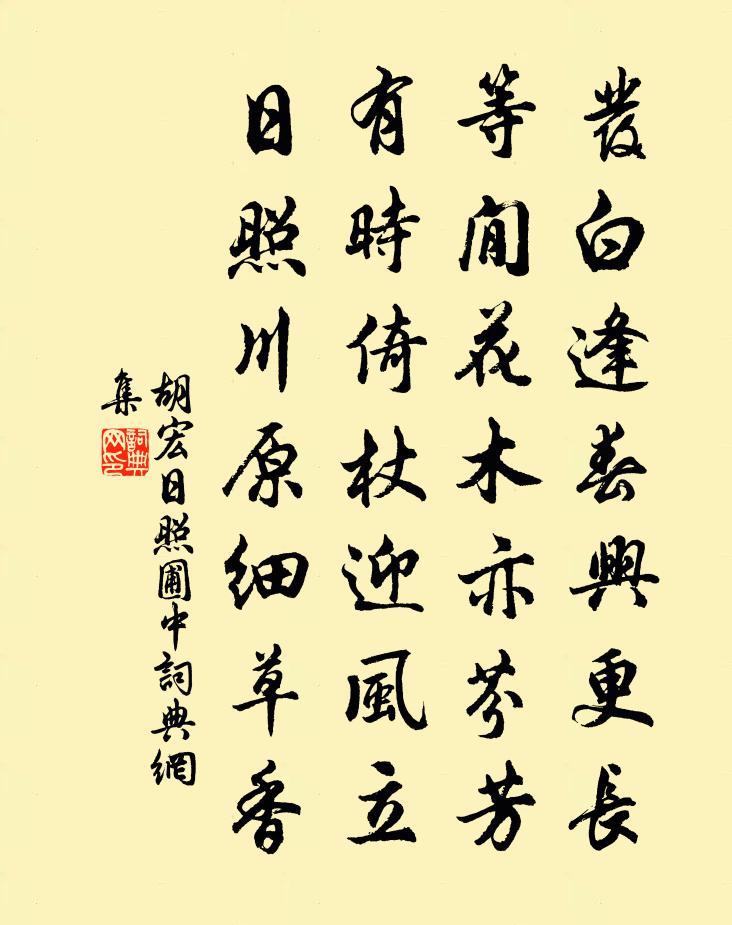 發白逢春興更長
等閒花木亦芬芳
有時倚杖迎風立
日照川原細草香
胡宏日照圃中詞典網
集
詞典
网印